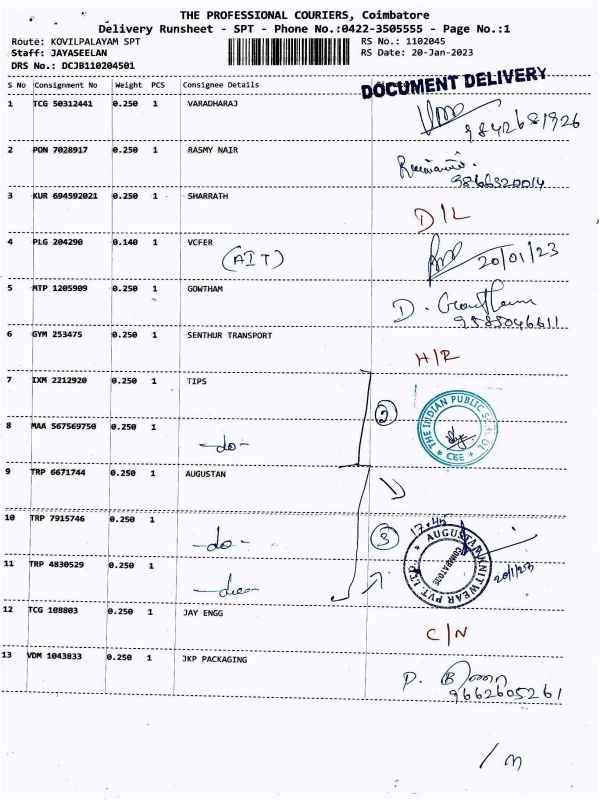 THE PROFESSIONAL COURIERS, Coimbatore
Delivery Runsheet - SPT - Phone No.:0422-3505555 - Page No.:1
Route: KOVILPALAYAM SPT RS No.: 1102045
Staff: JAYASEELAN RS Date: 20-Jan-2023
DRS No.: DCJB110204501
DOCUMENT DELIVERY
S No Consignment No Weight PCS Consignee Details
1 TCG 50312441 0.250 1 VARADHARAJ
9842681926
2 PON 7028917 0.250 1 RASMY NAIR
9866320014
3 KUR 694592021 0.250 1 SHARRATH
D/L
4 PLG 204290 0.140 1 VCFER
(AIT) 20/01/23
5 MTP 1205909 0.250 1 GOWTHAM
D. Gowtham
9585046611
6 GYM 253475 0.250 1 SENTHUR TRANSPORT
H/R
7 IXM 2212920 0.250 1 TIPS
2 THE INDIAN PUBLIC SCHOOL
* CBE *
8 MAA 567569750 0.250 1
-do-
9 TRP 6671744 0.250 1 AUGUSTAN
10 TRP 7915746 0.250 1
-do- 3 17:45
AUGUSTAN KNITWEAR PVT. LTD.
COIMBATORE
11 TRP 4830529 0.250 1
-do- 20/1/23
12 TCG 108803 0.250 1 JAY ENGG
C/N
13 VDM 1043833 0.250 1 JKP PACKAGING
P.
9662605261